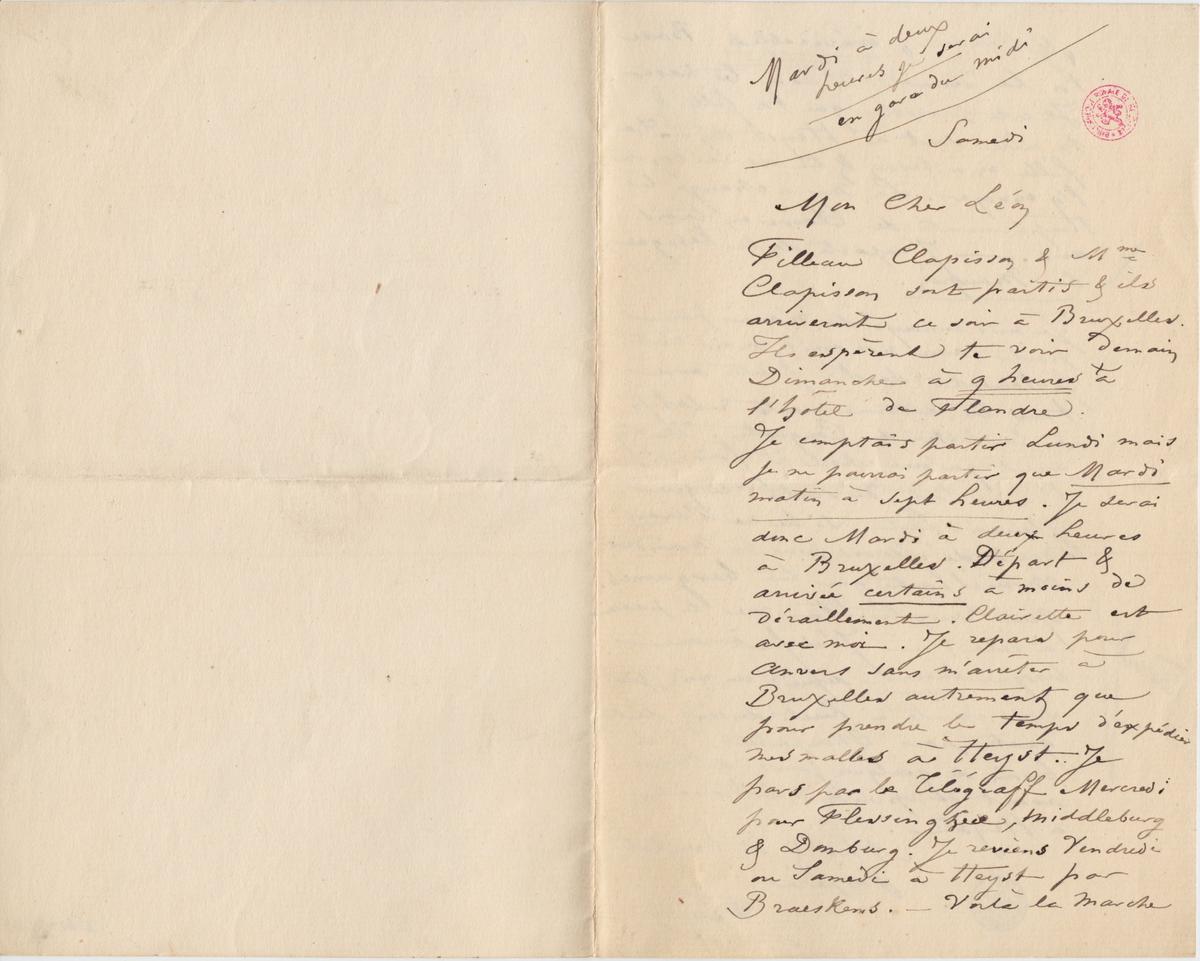 Mardi à deux
heures je serai
en gare du midi
Samedi
Mon Cher Léon
Filleau Clapisson & Mme
Clapisson sont partis & ils
arriveront ce soir à Bruxelles.
Ils espèrent te voir demain
Dimanche à 9 heures à
l'hôtel de Flandre.
Je comptais partir Lundi mais
je ne pourrai partir que Mardi
matin à sept heures. Je serai
donc Mardi à deux heures
à Bruxelles. Départ &
arrivée certains à moins de
déraillement. Clairette est
avec moi. Je repars pour
Anvers sans m'arrêter à
Bruxelles autrement que
pour prendre le temps d'expédier
mes malles à Heyst. Je
pars par le Télégraff Mercredi
pour Flessinghe, Middleburg
& Domburg. Je reviens Vendredi
ou Samedi à Heyst par
Braeskens. — Voilà la marche